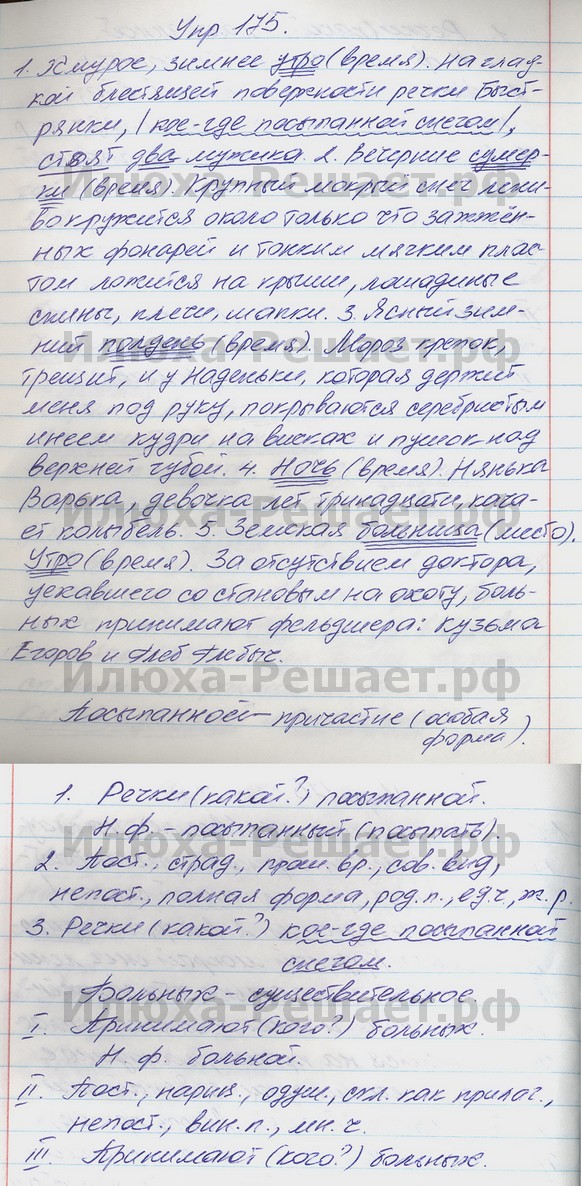 Упр. 175.
1. Хмурое, зимнее утро (время). На глад-
кой блестящей поверхности речки Быст-
рянки, |кое-где посыпанной снегом|,
стоят два мужика. 2. Вечерние сумер-
ки (время). Крупный мокрый снег лени-
во кружится около только что зажжён-
ных фонарей и тонким мягким плас-
том ложится на крыши, лошадиные
спины, плечи, шапки. 3. Ясный зим-
ний полдень (время). Мороз крепок,
трещит, и у Наденьки, которая держит
меня под руку, покрываются серебристым
инеем кудри на висках и пушок над
верхней губой. 4. Ночь (время). Нянька
Варька, девочка лет тринадцати, кача-
ет колыбель. 5. Земская больница (место).
Утро (время). За отсутствием доктора,
уехавшего со становым на охоту, боль-
ных принимают фельдшера: Кузьма
Егоров и Глеб Глебыч.
Илюха-Решает.рф
Посыпанной – причастие (особая
форма).
1. Речки (какой?) посыпанной.
Н.ф. – посыпанный (посыпать).
2. Пост., страд., прош. вр., сов. вид,
непост., полная форма, род. п., ед.ч, ж.р.
3. Речки (какой?) кое-где посыпанной
снегом.
Больных – существительное.
I. Принимают (кого?) больных.
Н.ф. больной.
II. Пост., нариц., одуш., скл. как прилаг.,
непост., вин. п., мн. ч.
III. Принимают (кого?) больных.